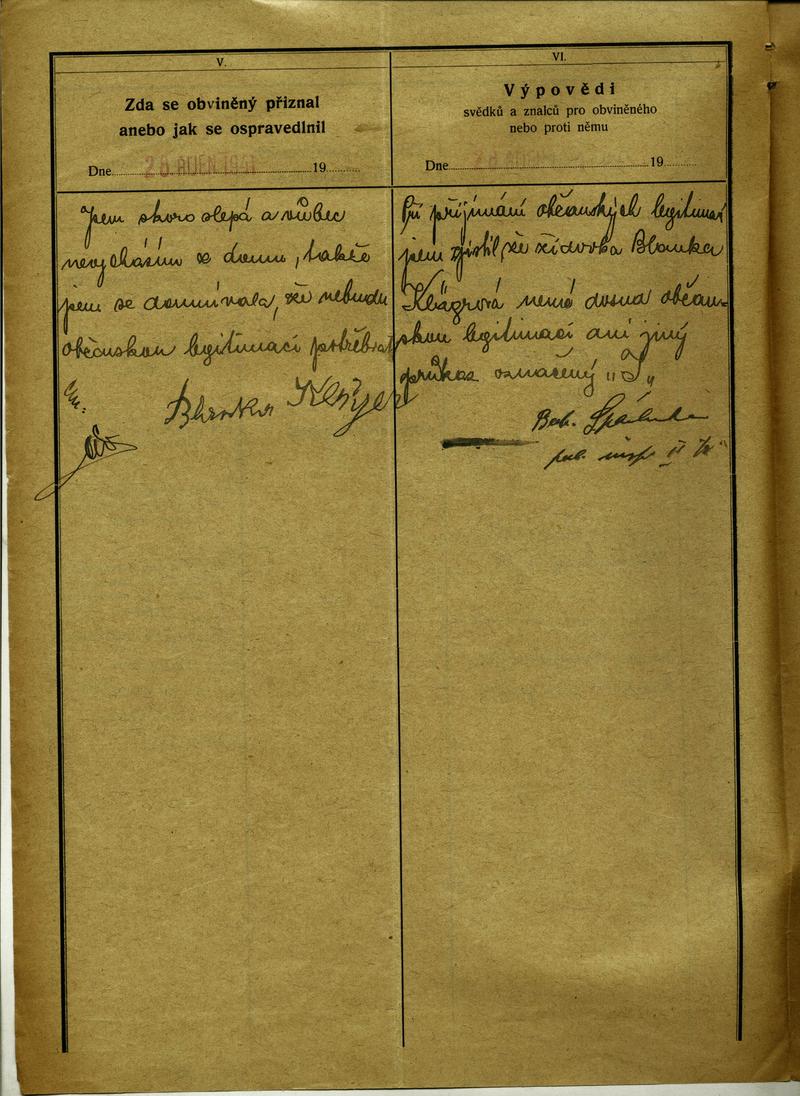 V.
Zda se obviněný přiznal
anebo jak se ospravedlnil
Dne 28 ŘÍJEN 1941 19
Jsem skoro slepá a vůbec
nevycházím z domu, takže
jsem se domnívala, že nebudu
občanskou legitimaci potřebovat
Blanka
VI.
Výpovědi
svědků a znalců pro obviněného
nebo proti němu
Dne 19
Při přijímání občanských legitimací
jsem zjistil, že židovka Blanka
nemá dosud občan-
skou legitimaci ani jiný
průkaz označený „J„